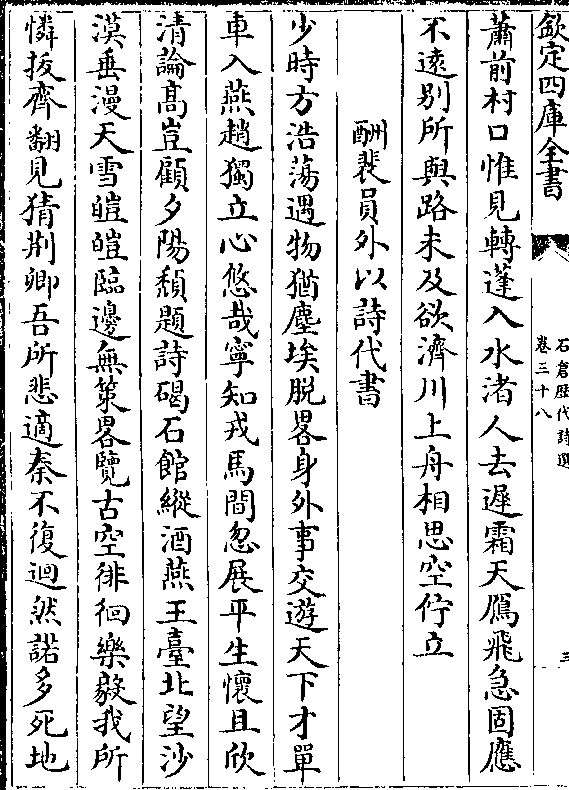 欽定四庫全書
石倉歷代詩選
卷三十八
三
蕭前村口惟見轉蓬入水渚人去遲霜天鴈飛急固應
不遠别所與路未及欲濟川上舟相思空佇立
酬裴員外以詩代書
少時方浩蕩遇物猶塵埃脱畧身外事交遊天下才單
車入燕趙獨立心悠哉寧知戎馬間忽展平生懷且欣
清論髙豈顧夕陽頹題詩碣石館縱酒燕王臺北望沙
漠垂漫天雪皚皚臨邊無策畧覽古空徘徊樂毅我所
憐拔齊翻見猜荆卿吾所悲適秦不復迴然諾多死地